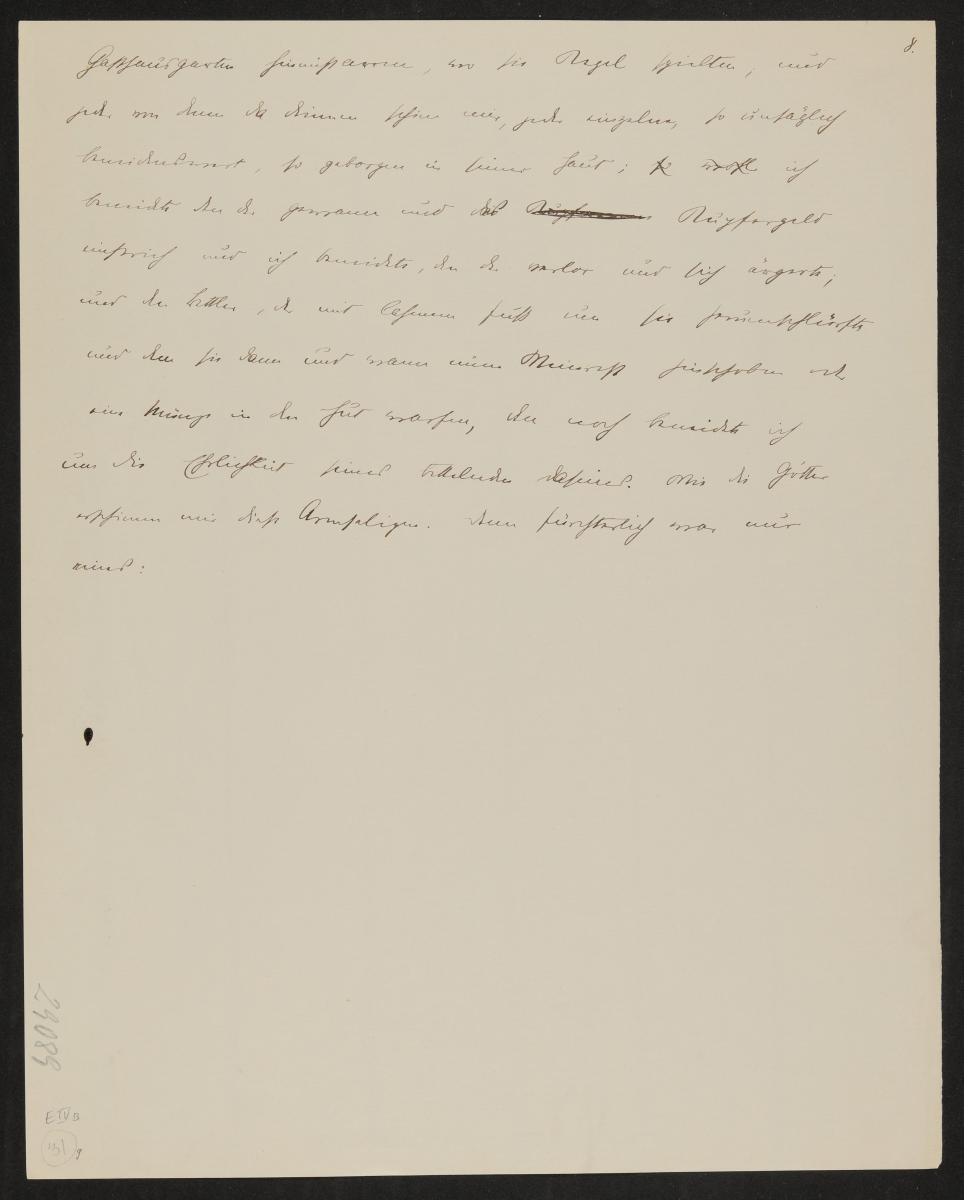 8.
Gasthausgarten hineinstarren, wo sie Kegel spielten, und
jeder von denen da drinnen schien mir, jeder einzelne, so unsäglich
beneidenswert, so geborgen in seiner Haut; ich
beneidete den der gewann und das Kupfergeld
einstrich und ich beneidete, den der verlor und sich ärgerte;
und den Bettler, der mit lahmem Fuß um sie herumschlürfte
und dem sie dann und wann einen Weinrest hinschoben oder
eine Münze in den Hut warfen, den noch beneidete ich
um die Ehrlichkeit seines bettelnden Daseins. Wie die Götter
erschienen mir diese Armseligen. Denn fürchterlich war nur
eines:
24089
E IV B
31
9